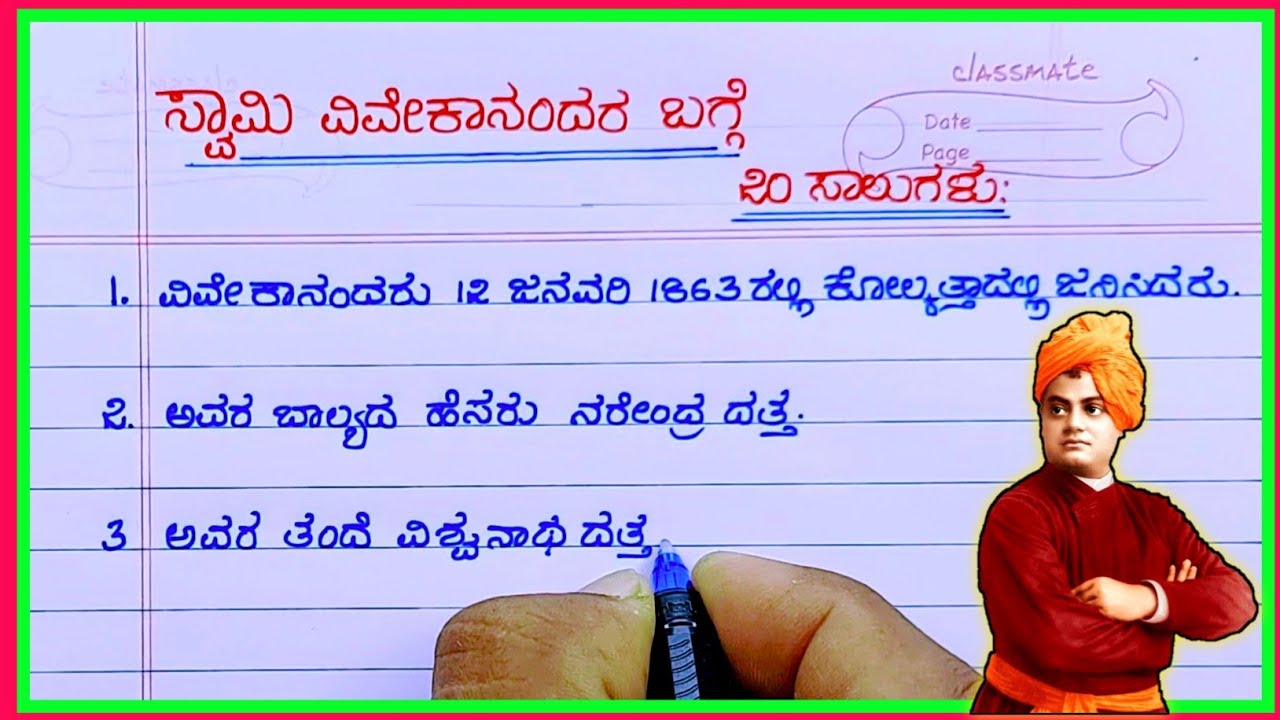 classmate
Date
Page
ಸ್ವಾಮಿ ವಿವೇಕಾನಂದರ ಬಗ್ಗೆ
೨೦ ಸಾಲುಗಳು:
1. ವಿವೇಕಾನಂದರು 12 ಜನವರಿ 1863 ರಲ್ಲಿ ಕೋಲ್ಕತ್ತಾದಲ್ಲಿ ಜನಿಸಿದರು.
2. ಅವರ ಬಾಲ್ಯದ ಹೆಸರು ನರೇಂದ್ರ ದತ್ತ.
3 ಅವರ ತಂದೆ ವಿಶ್ವನಾಥ ದತ್ತ